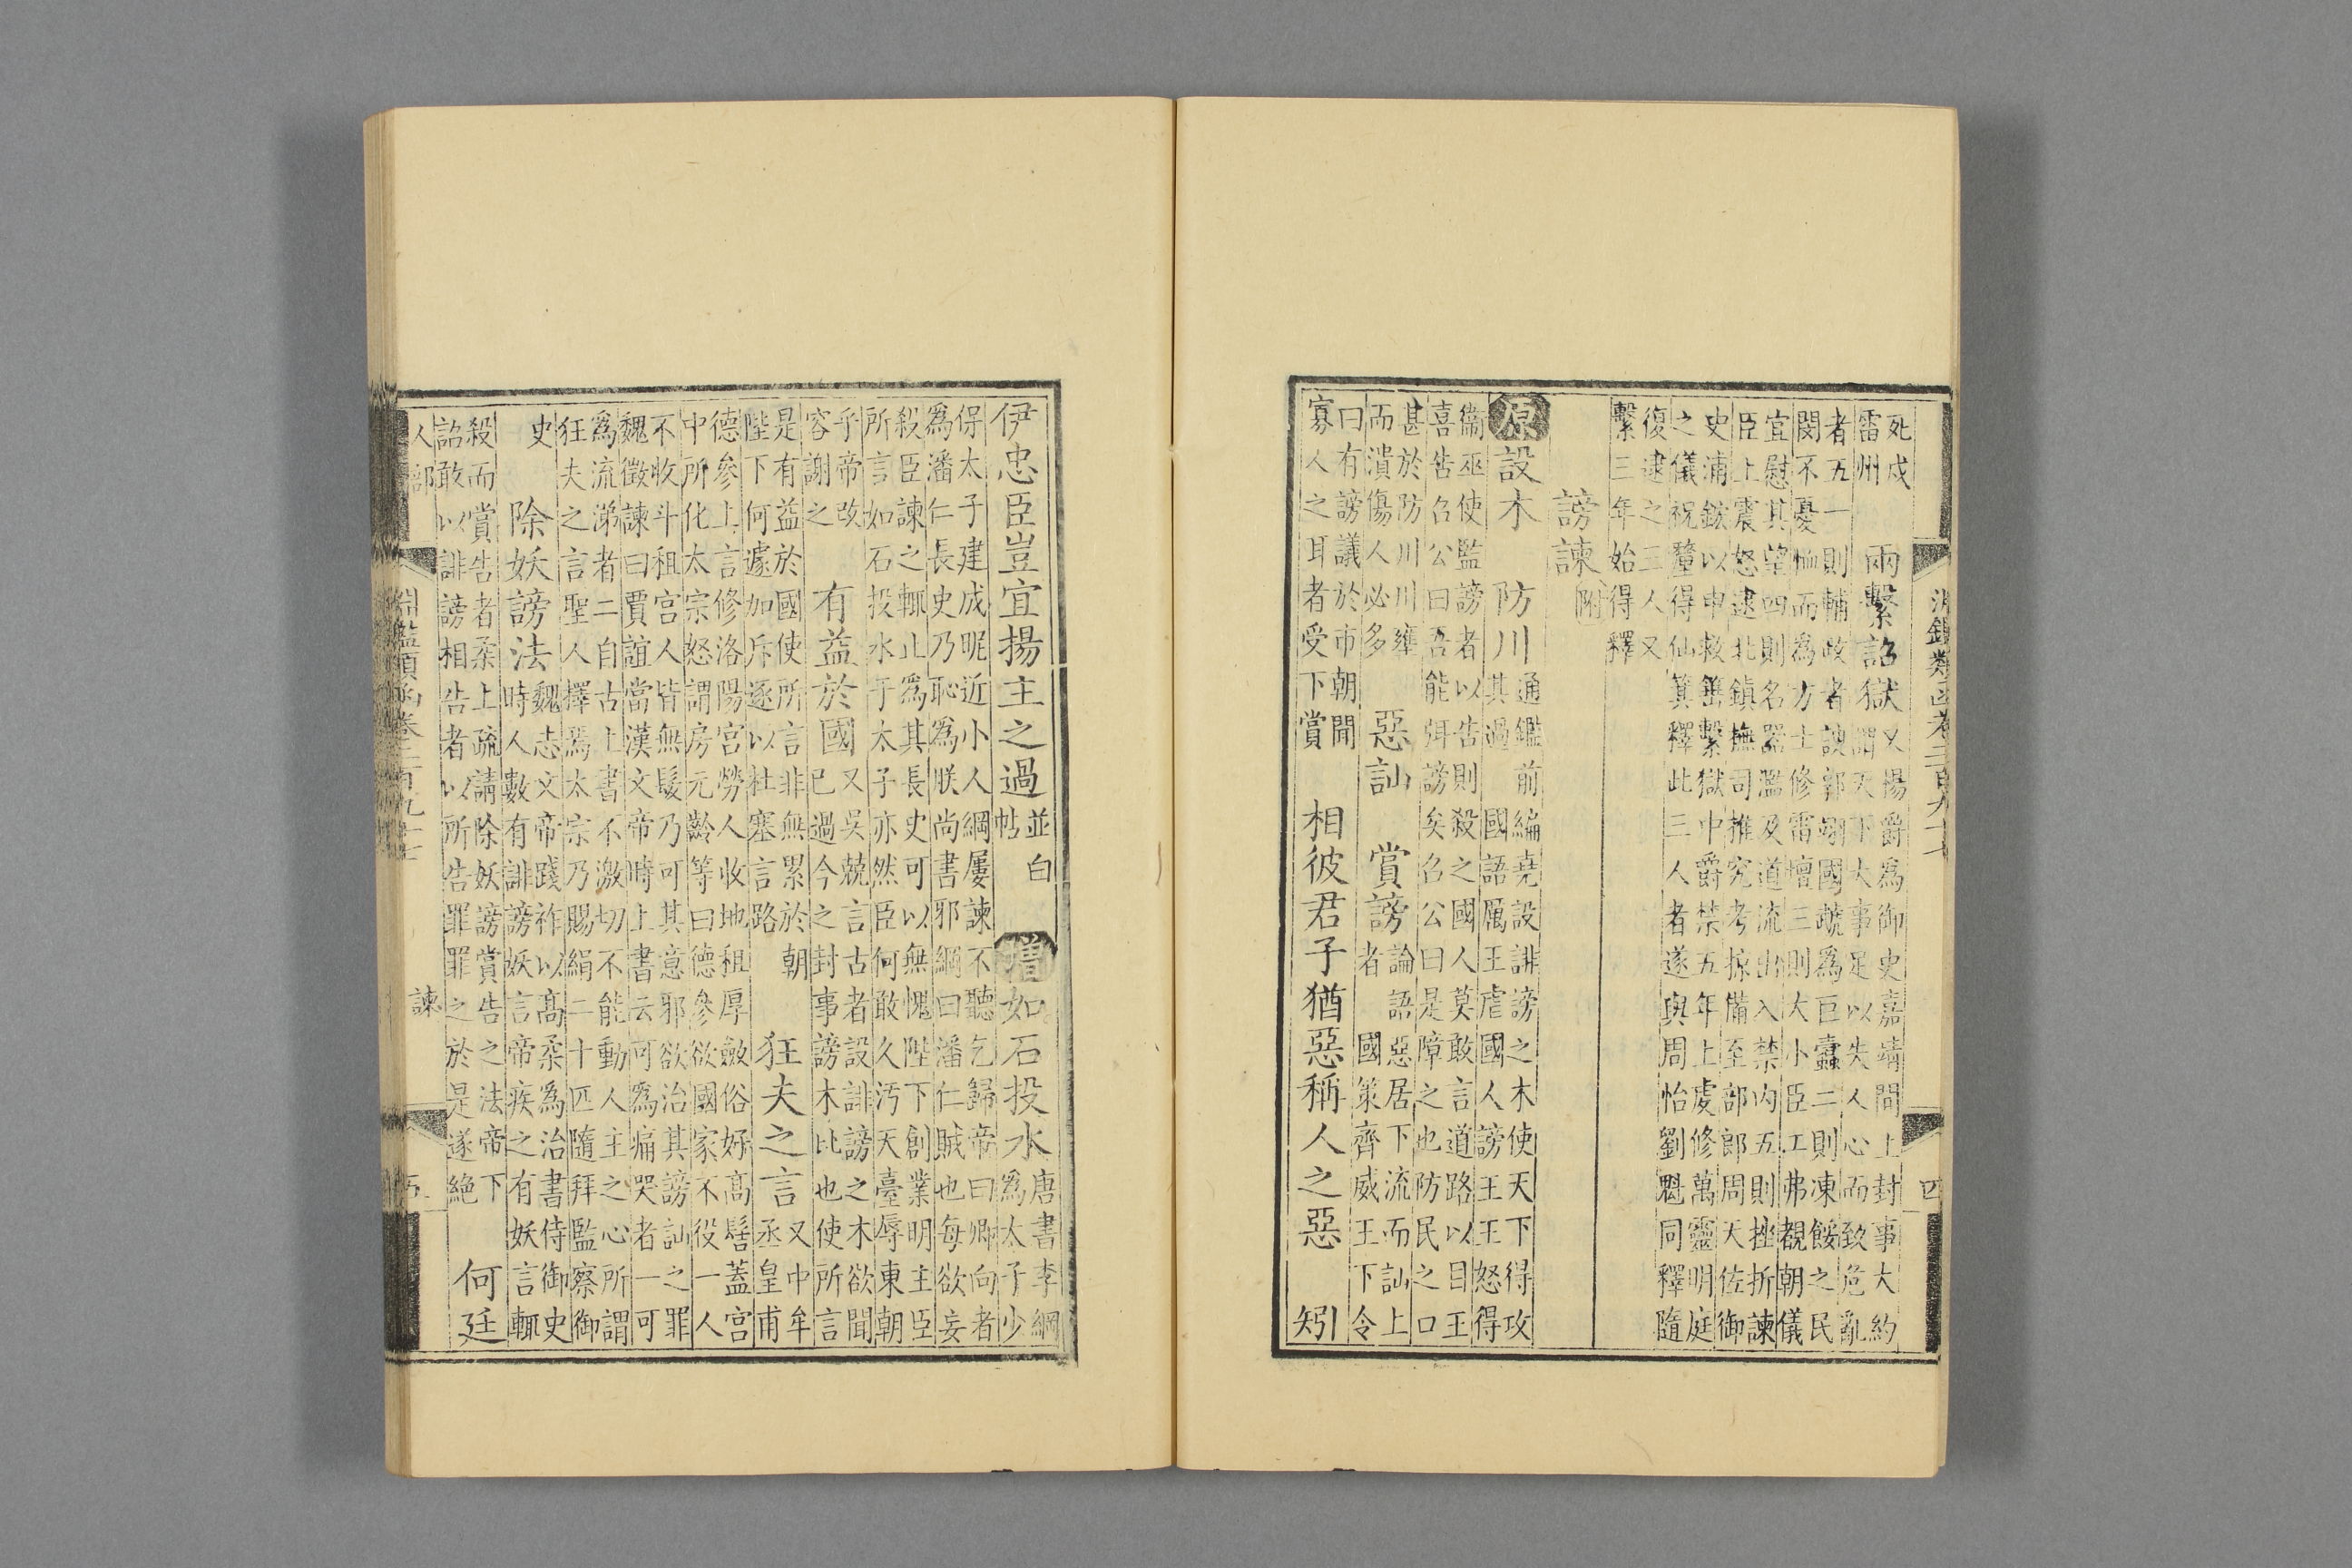 淵鑑類函卷二百九十七 四
死戍
雷州
兩繫詔獄
又楊爵為御史嘉靖間上封事大約
謂天下大事足以失人心而致危亂
者五一則輔政者諛郭翊國為巨蠹二則凍餒之民
閔不憂恤而為方士修雷壇三則大小臣工弗覲朝儀
宜慰其望四則名器濫及道流出入禁內五則挫折諫
臣上震怒逮北鎮撫司推究考掠備至部郎周天佐御
史浦鋐以申救繫獄中爵禁五年上虔修萬靈明庭
之儀祝釐得仙箕釋此三人者遂與周怡劉魁同釋隨
復逮之三人又
繫三年始得釋
謗諫附
原設木 防川
通鑑前編堯設誹謗之木使天下得攻
其過 國語厲王虐國人謗王王怒得
衞巫使監謗者以告則殺之國人莫敢言道路以目王
喜告召公曰吾能弭謗矣召公曰是障之也防民之口
甚於防川川壅
而潰傷人必多
惡訕 賞謗
論語惡居下流而訕上
者 國策齊威王下令
曰有謗議於市朝聞
寡人之耳者受下賞
相彼君子猶惡稱人之惡 矧
伊忠臣豈宜揚主之過
並白
帖
增如石投水
唐書李綱
為太子少
保太子建成昵近小人綱屢諫不聽乞歸帝曰卿向者
為潘仁長史乃恥為朕尚書邪綱曰潘仁賊也每欲妄
殺臣諫之輒止為其長史可以無愧陛下創業明主臣
所言如石投水于太子亦然臣何敢久汚天臺辱東朝
乎帝改
容謝之
有益於國
又吳兢言古者設誹謗之木欲聞
已過今之封事謗木比也使所言
是有益於國使所言非無累於朝
陛下何遽加斥逐以杜塞言路
狂夫之言
又中牟
丞皇甫
德參上言修洛陽宮勞人收地租厚斂俗好高髻蓋宮
中所化太宗怒謂房元齡等曰德參欲國家不役一人
不收斗租宮人皆無髮乃可其意邪欲治其謗訕之罪
魏徵諫曰賈誼當漢文帝時上書云可為痛哭者一可
為流涕者二自古上書不激切不能動人主之心所謂
狂夫之言聖人擇焉太宗乃賜絹二十匹隨拜監察御
史
除妖謗法
魏志文帝踐祚以高柔為治書侍御史
時人數有誹謗妖言帝疾之有妖言輒
殺而賞告者柔上疏請除妖謗賞告之法帝下
詔敢以誹謗相告者以所告罪罪之於是遂絕
何廷
人部 淵鑑類函卷二百九十七 諫 五